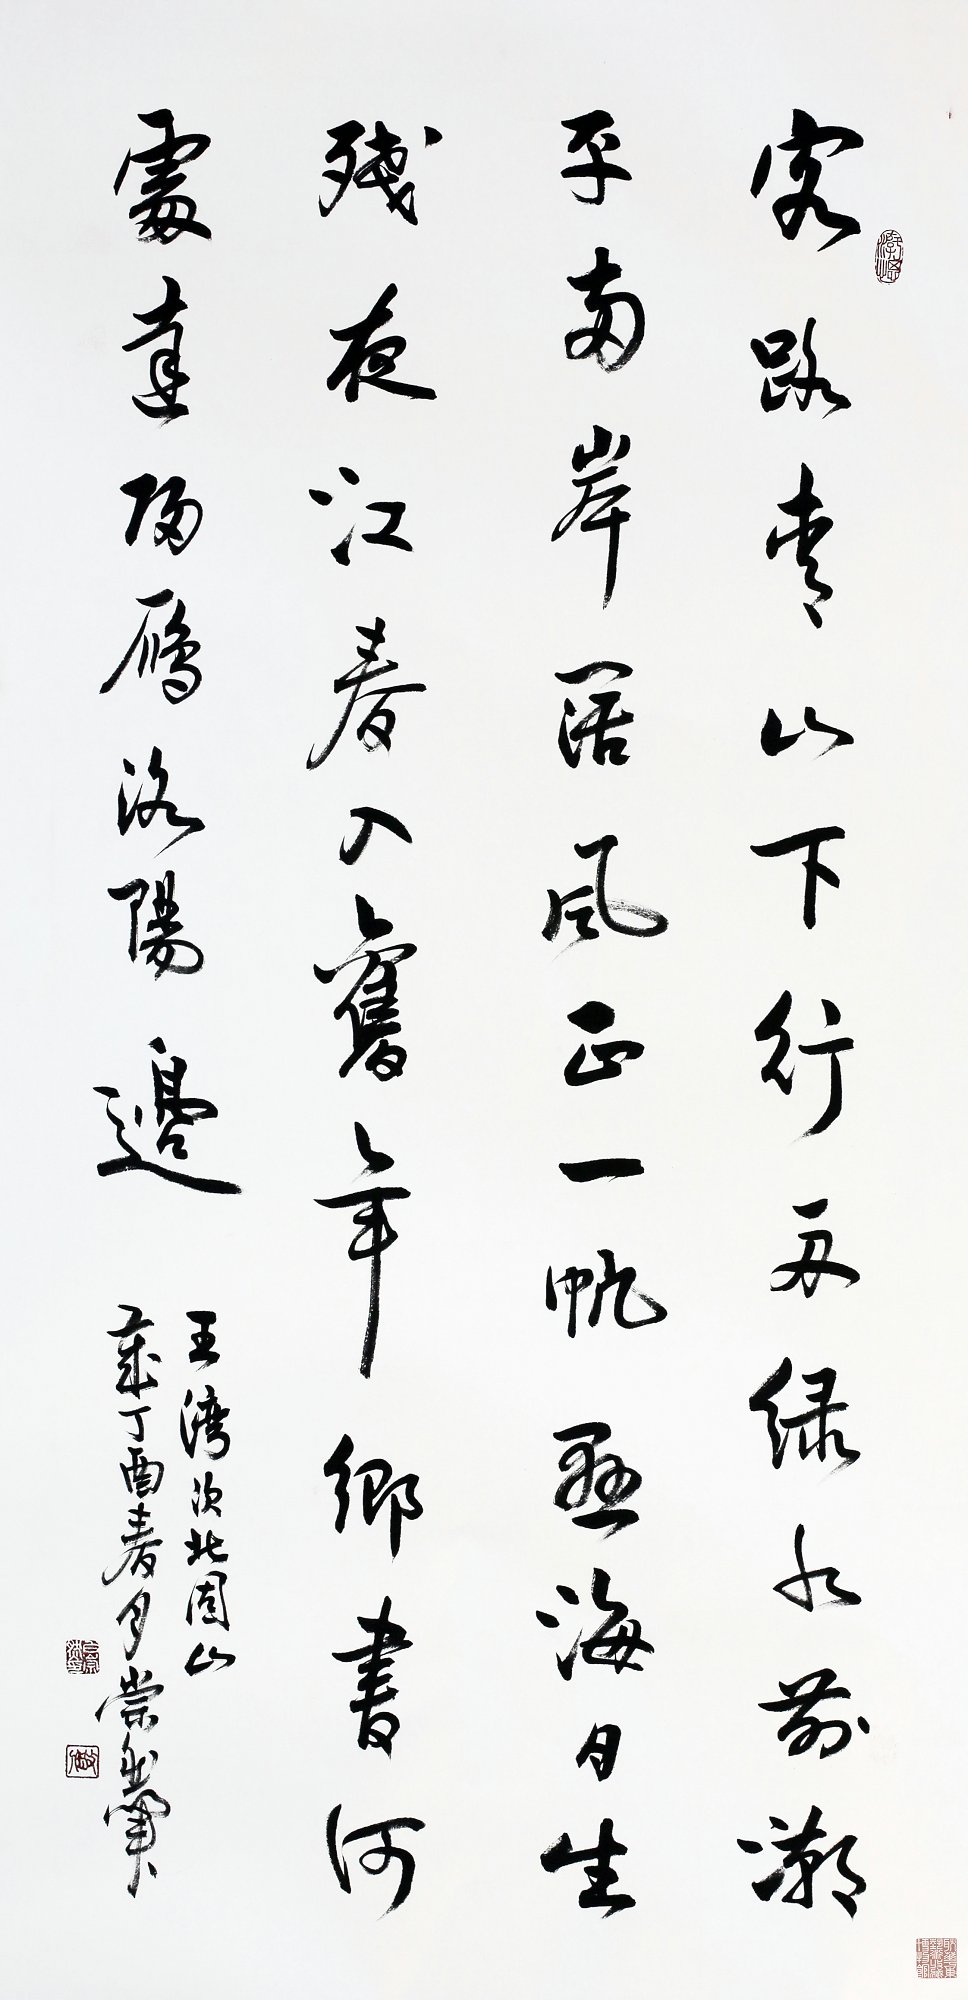 客路青山下行舟綠水前潮
平兩岸闊風正一帆懸海日生
殘夜江春入舊年鄉書何
處達歸鴈洛陽邊
王灣次北固山
歲丁酉春月崇筆